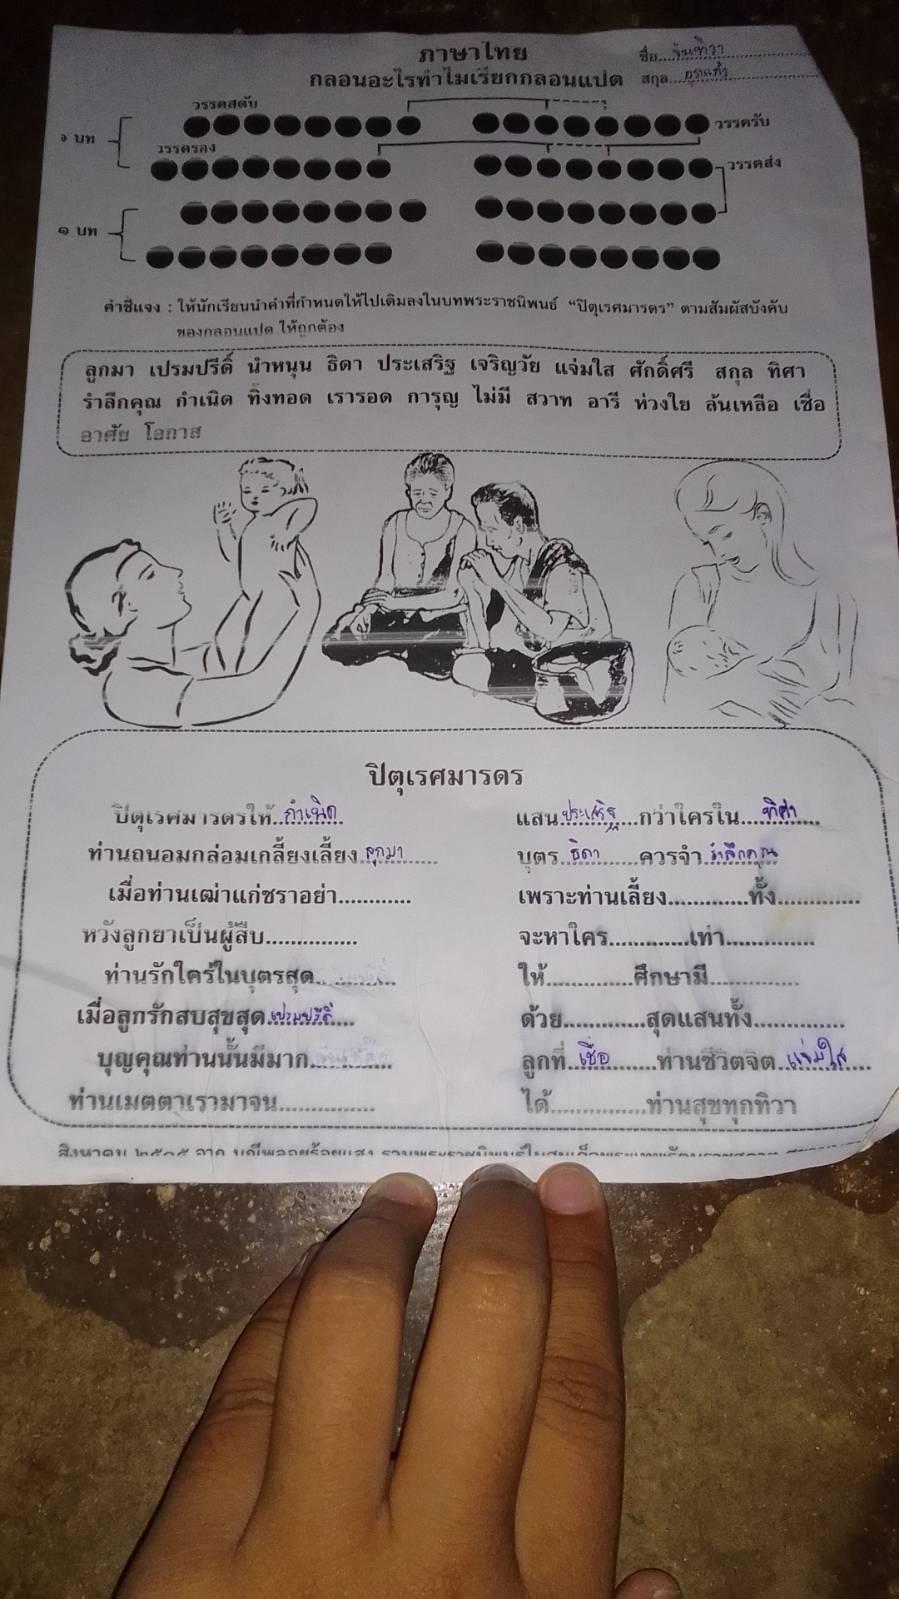 ภาษาไทย
ชื่อ
กลอนอะไรทำไมเรียกกลอนแปด
สกุล
วรรคสดับ
วรรครับ
๑ บท
วรรครอง
วรรคส่ง
๑ บท
คำชี้แจง : ให้นักเรียนนำคำที่กำหนดให้ไปเติมลงในบทพระราชนิพนธ์ "ปิตุเรศมารดร" ตามสัมผัสบังคับ
ของกลอนแปด ให้ถูกต้อง
ลูกมา เปรมปรีดิ์ นำหนุน ธิดา ประเสริฐ เจริญวัย แจ่มใส ศักดิ์ศรี สกุล ทิศา
รำลึกคุณ กำเนิด ทิ้งทอด เรารอด การุญ ไม่มี สวาท อารี ห่วงใย ล้นเหลือ เชื่อ
อาศัย โอกาส
ปิตุเรศมารดร
ปิตุเรศมารดรให้..กำเนิด แสน ประเสริฐ....กว่าใครใน....ทิศา
ท่านถนอมกล่อมเกลี้ยงเลี้ยง ลูกมา บุตร ธิดา ควรจำ รำลึกคุณ
เมื่อท่านเฒ่าแก่ชราอย่า............ เพราะท่านเลี้ยง.............ทั้ง.............
หวังลูกยาเป็นผู้สืบ............... จะหาใคร.............เท่า..............
ท่านรักใคร่ในบุตรสุด............. ให้..............ศึกษามี..............
เมื่อลูกรักสบสุขสุด เปรมปรีดิ์ ด้วย.............สุดแสนทั้ง..............
บุญคุณท่านนั้นมีมาก............. ลูกที่..เชื่อ........ท่านชีวิตจิต..แจ่มใส
ท่านเมตตาเรามาจน............... ได้...............ท่านสุขทุกทิวา